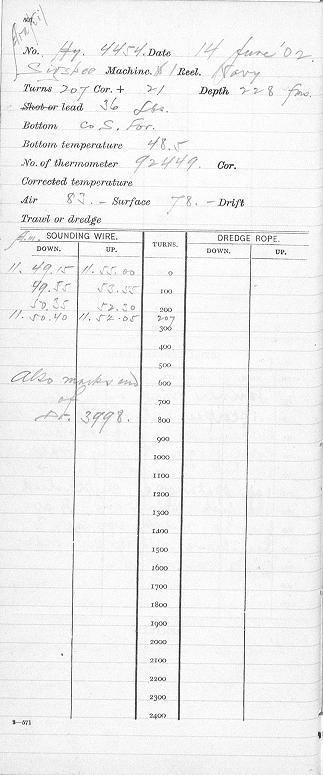 No. Hy. 4454. Date 14 June '02.
Sigsbee Machine. #1 Reel. Navy
Turns 207 Cor. + 21 Depth 228 fms.
Shot or lead 36 lbs.
Bottom Co. S. For.
Bottom temperature 48.5
No. of thermometer 92449. Cor.
Corrected temperature
Air 83. - Surface 78. - Drift
Trawl or dredge
a.m. SOUNDING WIRE. TURNS. DREDGE ROPE.
DOWN. UP. DOWN. UP.
11. 49.15 11. 55.00 0
49.55 53.55 100
50.35 52.30 200
11. 50.40 11. 52.05 207
300
400
500
Also marks end 600
of 700
3998. 800
900
1000
1100
1200
1300
1400
1500
1600
1700
1800
1900
2000
2100
2200
2300
2400
2—571